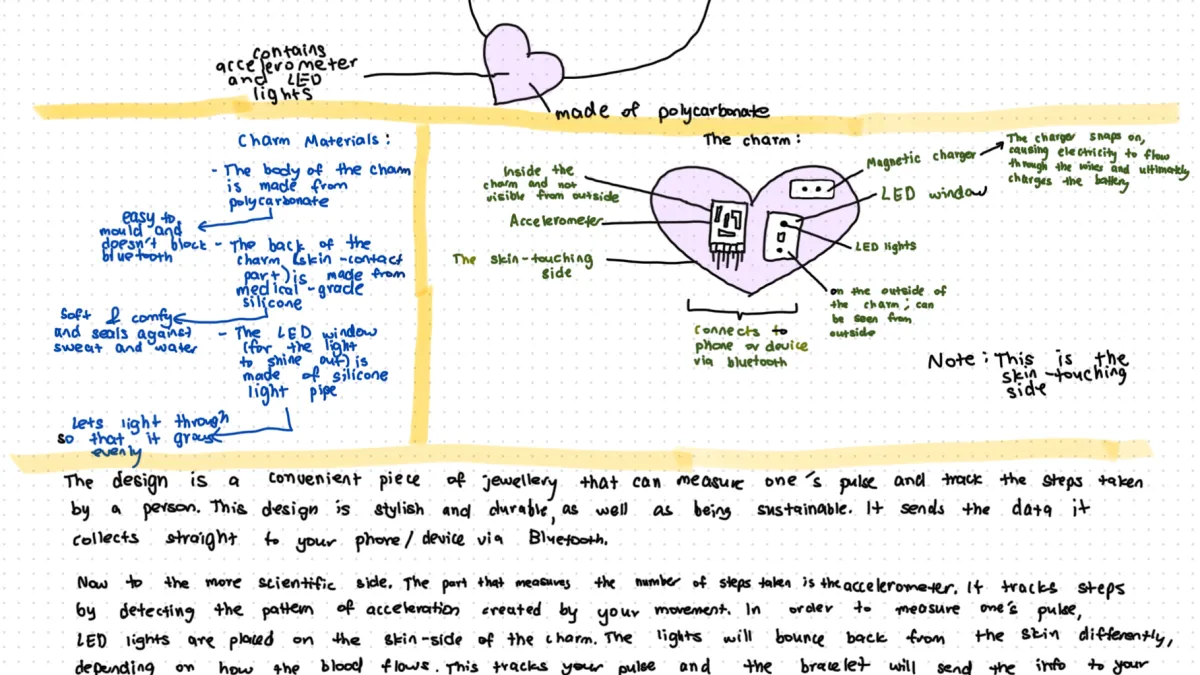 contains
accelerometer
and LED
lights
made of polycarbonate
Charm Materials:
- The body of the charm
is made from
polycarbonate
easy to
mould and
doesn't block
bluetooth
- The back of the
charm (skin-contact
part) is made from
medical-grade
silicone
Soft & comfy
and seals against
sweat and water
- The LED window
(for the light
to shine out) is
made of silicone
light pipe
Lets light through
so that it grows
evenly
The charm:
Inside the
charm and not
visible from outside
Accelerometer
The skin-touching
side
Magnetic charger
The charger snaps on,
causing electricity to flow
through the wires and ultimately
charges the battery
LED window
LED lights
on the outside of
the charm; can
be seen from
outside
connects to
phone or device
via bluetooth
Note: This is the
skin-touching
side
The design is a convenient piece of jewellery that can measure one's pulse and track the steps taken
by a person. This design is stylish and durable, as well as being sustainable. It sends the data it
collects straight to your phone/device via Bluetooth.
Now to the more scientific side. The part that measures the number of steps taken is the accelerometer. It tracks steps
by detecting the pattern of acceleration created by your movement. In order to measure one's pulse,
LED lights are placed on the skin-side of the charm. The lights will bounce back from the skin differently,
depending on how the blood flows. This tracks your pulse and the bracelet will send the info to your